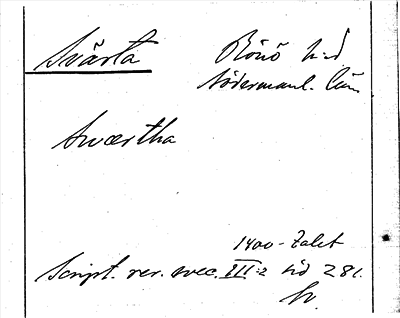 Svärta Rönö h-d
Södermanl. län
Swærtha
1400-talet
Script. rer. svec. III:2 sid 281.